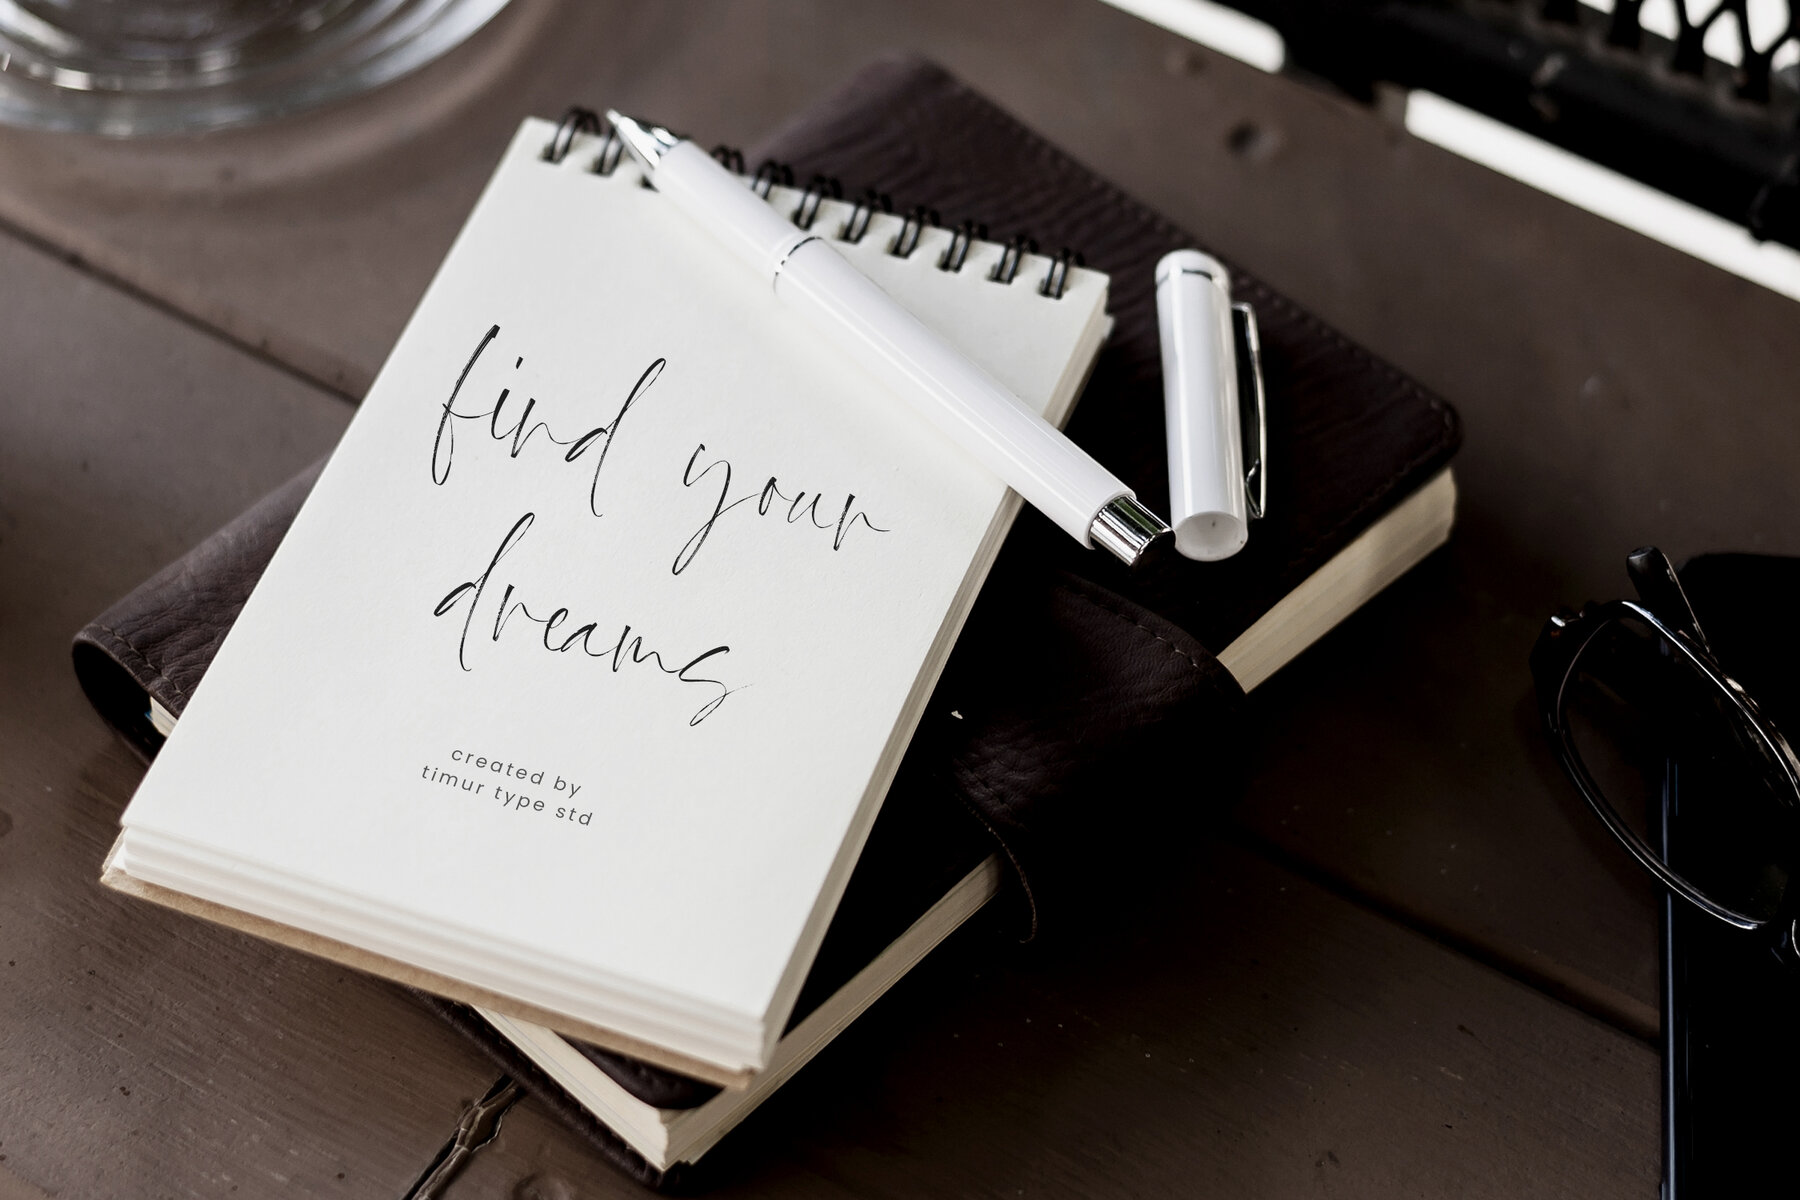 find your
dreams
created by
timur type std